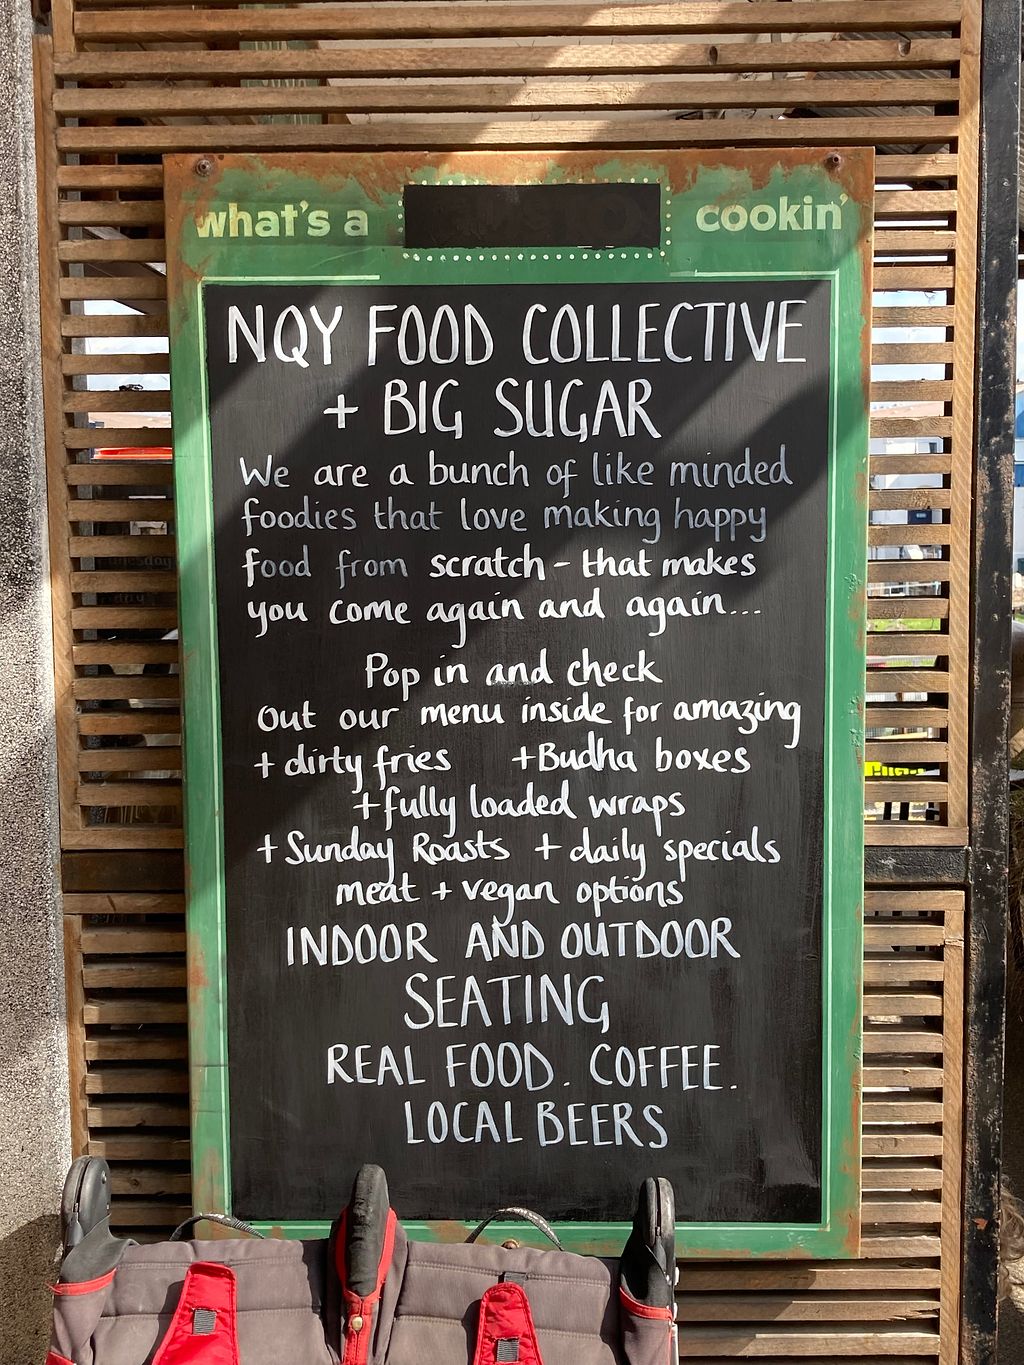 what's a cookin'
NQY FOOD COLLECTIVE
+ BIG SUGAR
We are a bunch of like minded
foodies that love making happy
food from scratch - that makes
you come again and again...
Pop in and check
out our menu inside for amazing
+ dirty fries + Budha boxes
+ fully loaded wraps
+ Sunday Roasts + daily specials
meat + vegan options
INDOOR AND OUTDOOR
SEATING
REAL FOOD. COFFEE.
LOCAL BEERS